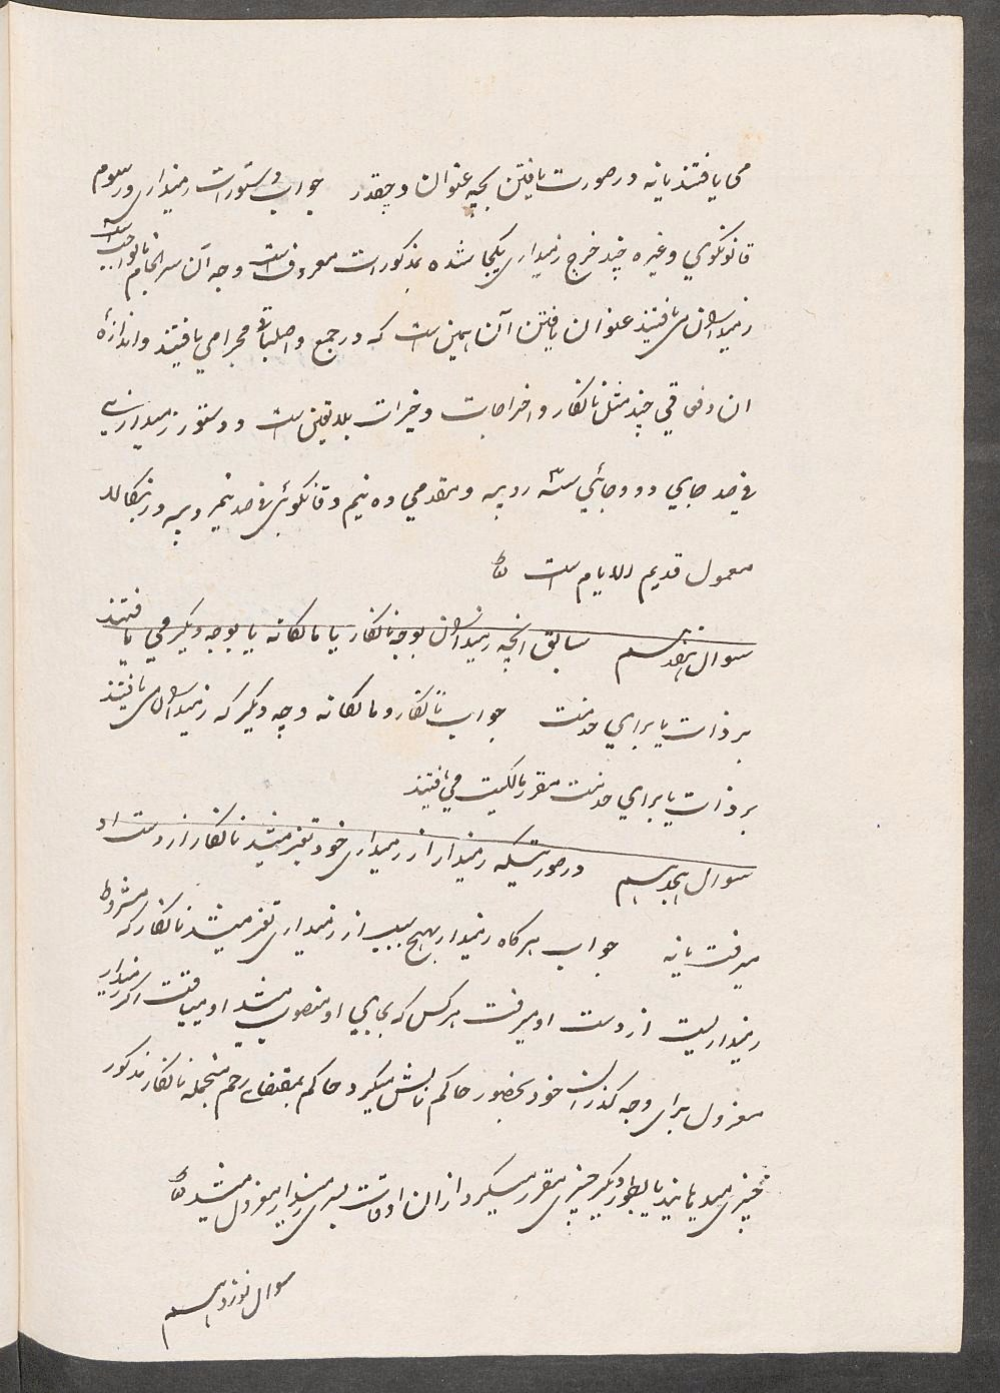 می یافتند یا نه در صورت یافتن بچه عنوان و چقدر جواب دستورات زمینداری و رسوم
قانونگوی و غیره چند خرج زمینداری یکجا شده مذکورات معروفست و جه آن سر انجام
زمینداران می یافتند عنوان یافتن آن همین است که در جمع و اصلباقی مجرا می یافتند و اندازهٔ
ان دفعاتی چند مثل نانکار و اخراجات و خیرات بلا تعین است و دستور زمینداری
فی صد جای دو و جائی سه روپیه و مقدمی ده نیم و قانونگوئی فی صد نیم روپیه در بنگاله
معمول قدیم الایام است
سوال هفدهم سابق انچه زمینداران بوجه نانکار یا مالکانه یا بوجه دیگر می یافتند
بر ذات یا برای خدمت جواب نانکار و مالکانه و جه دیگر که زمینداران می یافتند
بر ذات یا برای خدمت مقرر مالکیت می یافتند
سوال هجدهم در صورتیکه زمیندار از زمینداری خود تغیر میشد نانکار از دست او
میرفت یا نه جواب هر گاه زمیندار بهیچ سبب از زمینداری تغیر میشد نانکار که مشروط
زمینداریست از دست او میرفت هر کس که بجای او منصوب میشد او مییافت اگر زمیندار
معزول برای وجه گذران خود بحضور حاکم نالش میکرد حاکم بمقتضای رحم منجمله نانکار مذکور
چیزی میدهانید یا بطور دیگر چیزی مقرر میکرد ازان اوقات بسری زمیندار معزول میشد
سوال نوزدهم